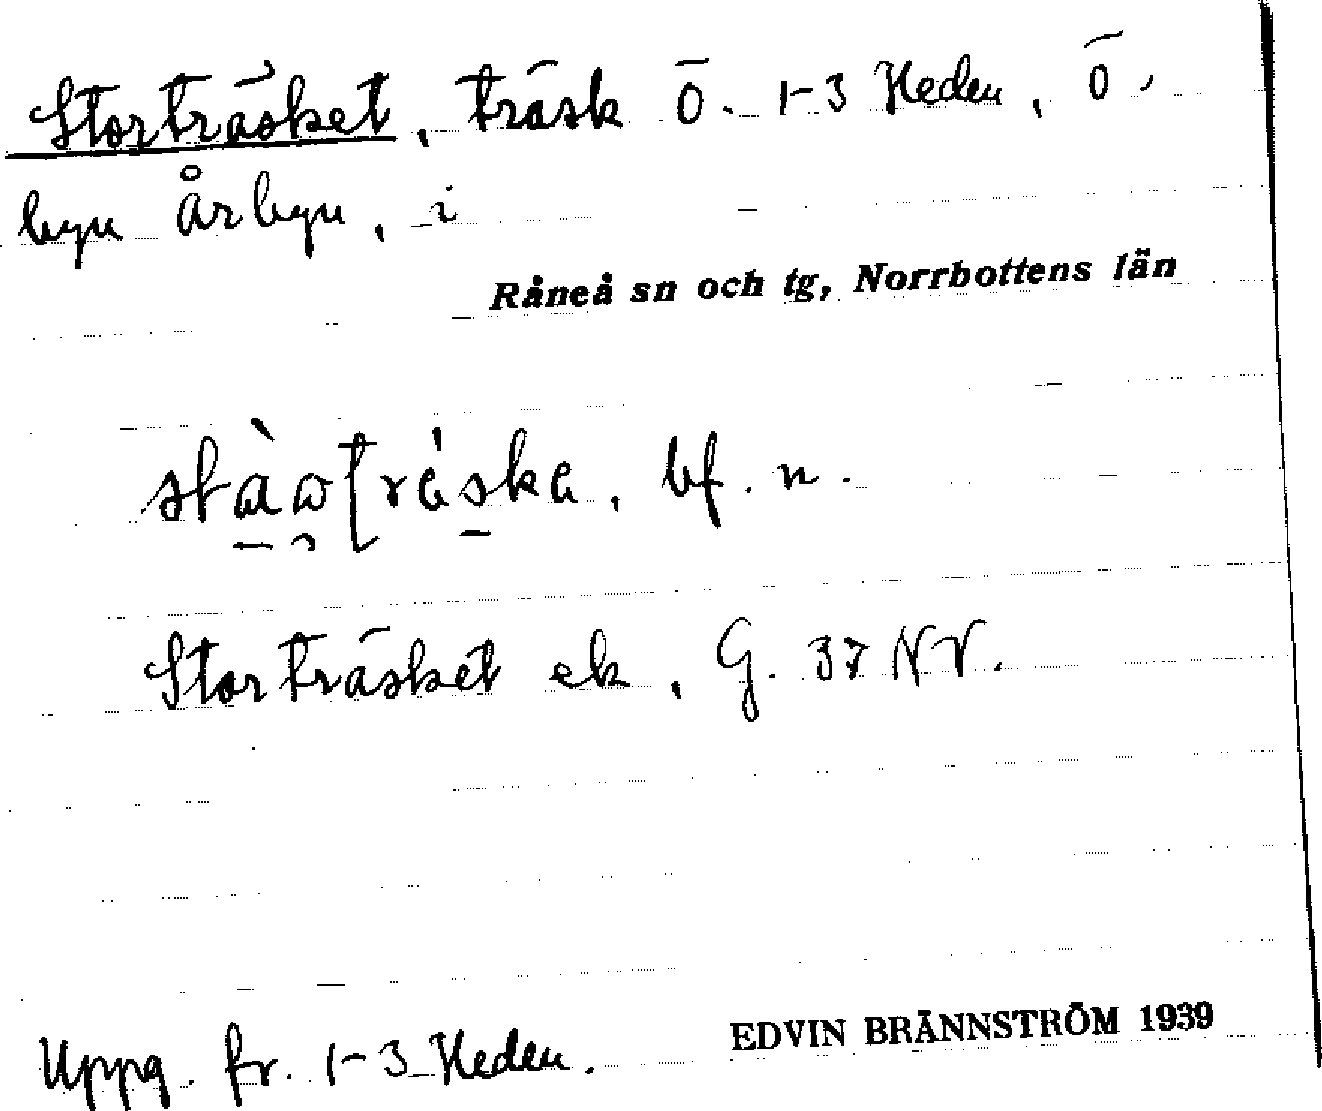 Storträsket, träsk ö. 1-3 Heden, ö.
byn Årbyn, i
Råneå sn och tg, Norrbottens län
bf. n.
Storträsket ek, G. 37 NV.
Uppg. fr. 1-3 Heden.
EDVIN BRÄNNSTRÖM 1939